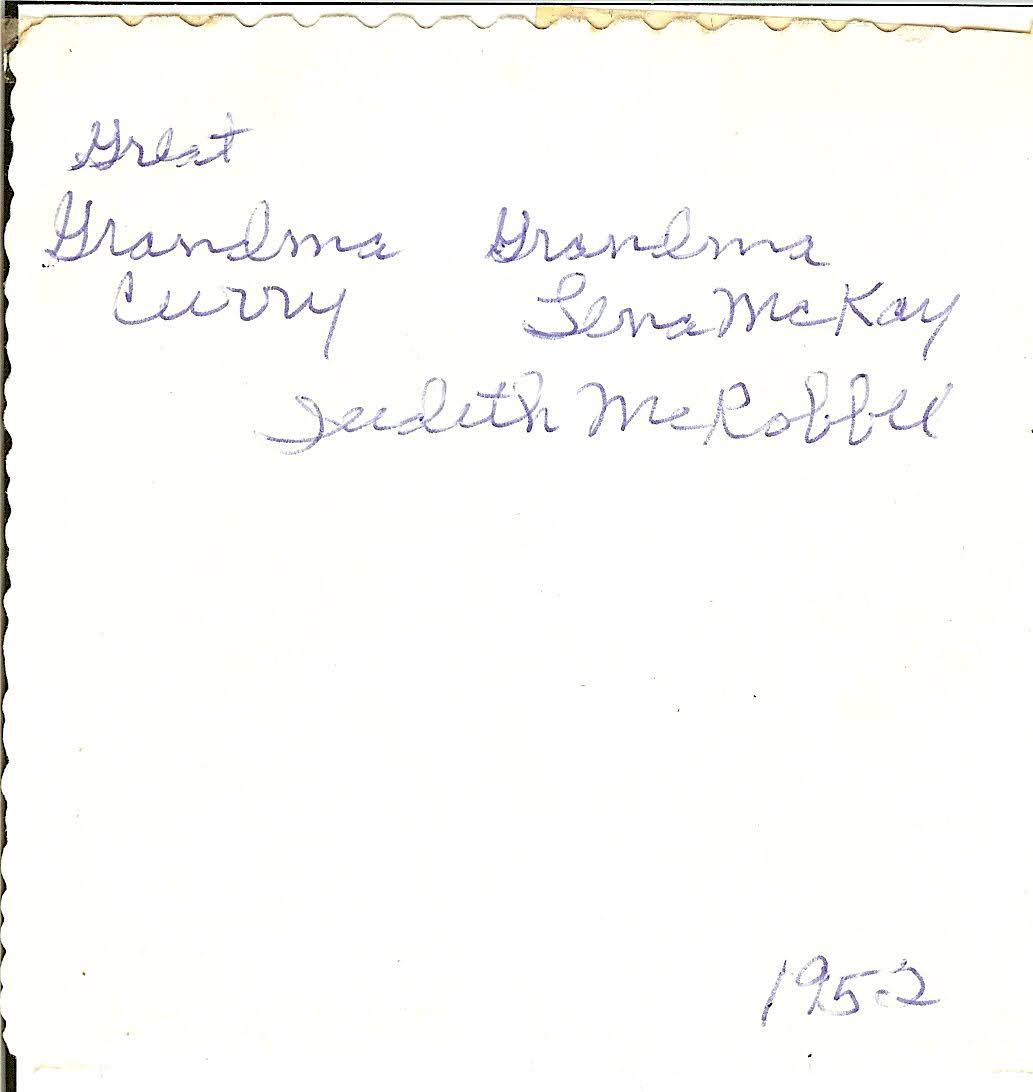 Great
Grandma Grandma
Curry Lena McKay
Judith McRobbie
1952